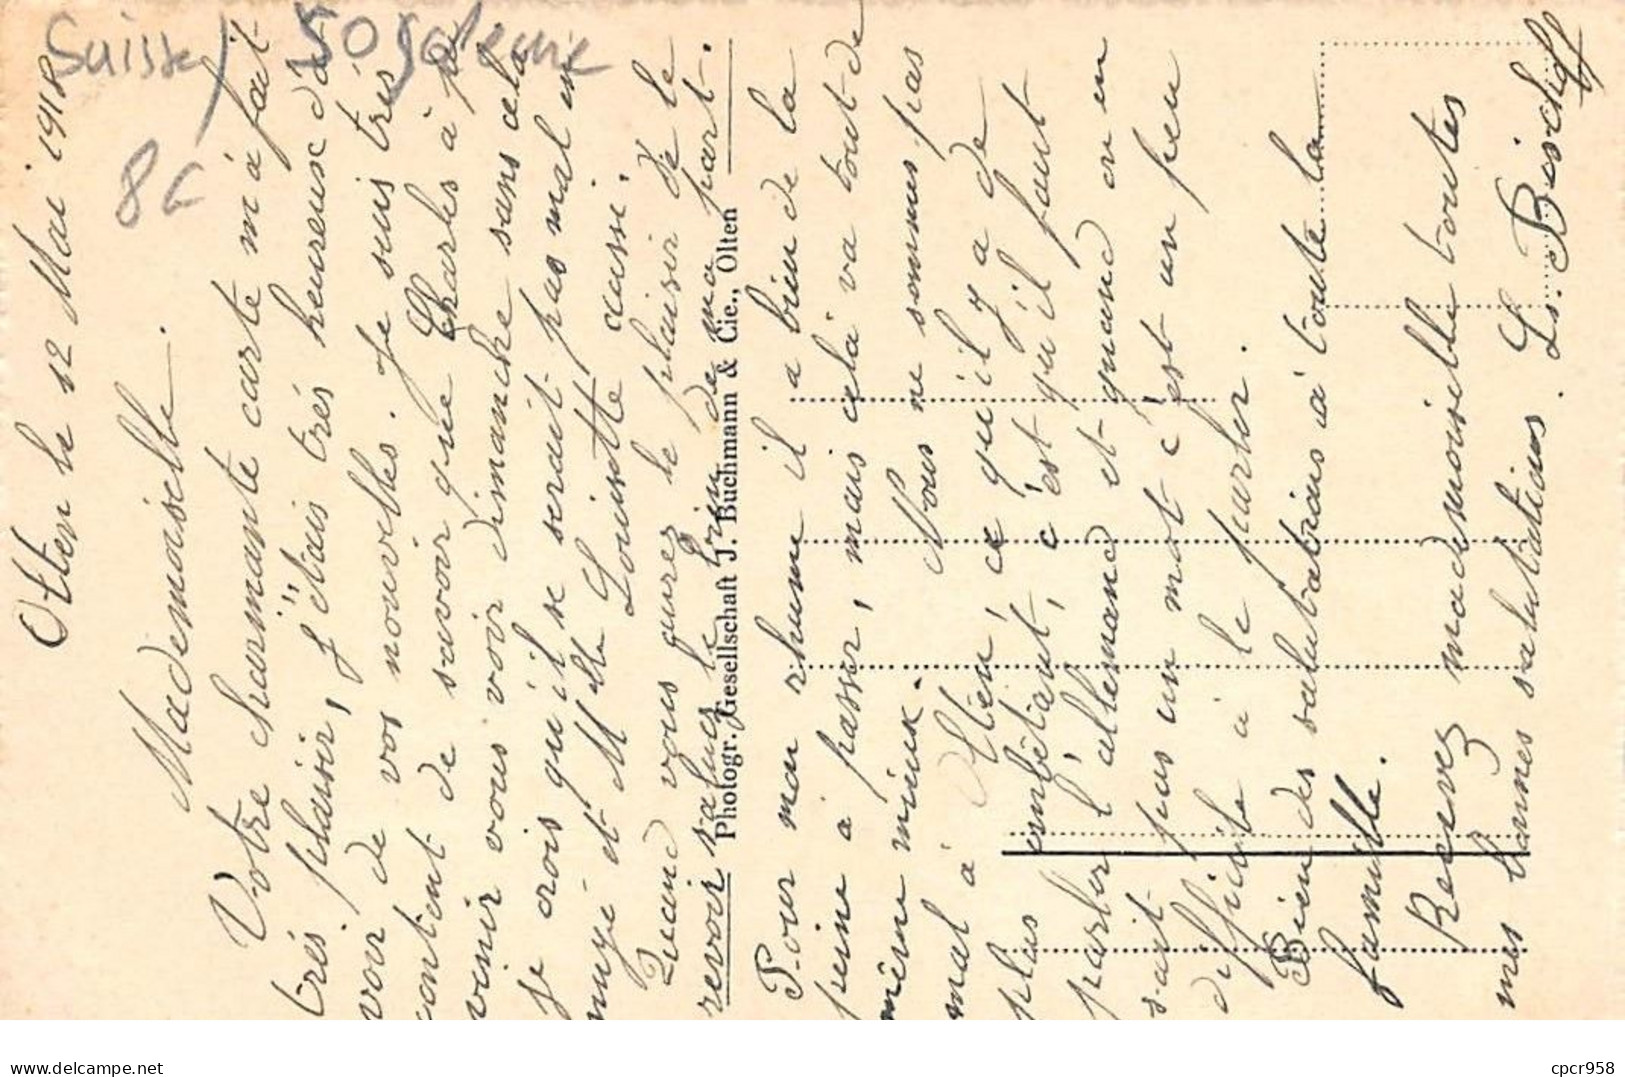 Suisse / Sogoleure
8€
Olten le 12 Mai 1918
Mademoiselle.
Votre charmante carte m'à fait
très plaisir, j'étais très heureuse d'a
voir de vos nouvelles. Je suis très
contient de savoir que Charles à pu
venir vous voir dimanche sans cela
je crois qu'il se serait pas mal en
nuyé et Mlle Louisette aussi.
Quand vous aurez le plaisir de le
revoir saluez le bien de ma part.
Photogr. Gesellschaft J. Buchmann & Cie., Olten
Pour mon rhume il a bien de la
peine à passer, mais cela va tout de
même mieux. Nous ne sommes pas
mal à Olten, ce qu'il y a de
plus embêtant, c'est qu'il faut
parler l'allemand et quand on en
sait pas un mot c'est un peu
difficile à le parler.
Bien des salutations à toute la
famille.
Recevez mademoiselle toutes
mes bonnes salutations. Ls. Bischoff
www.delcampe.net
cpcr958